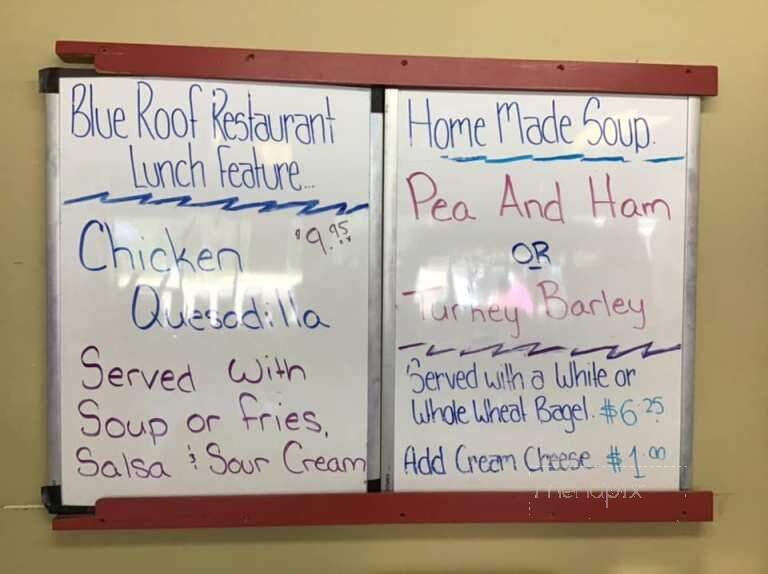 Blue Roof Restaurant
Lunch Feature...
Chicken $9.95
Quesadilla
Served With
Soup or fries,
Salsa & Sour Cream
Home Made Soup.
Pea And Ham
OR
Turkey Barley
Served with a White or
Whole Wheat Bagel. $6.25
Add Cream Cheese $1.00
menupix